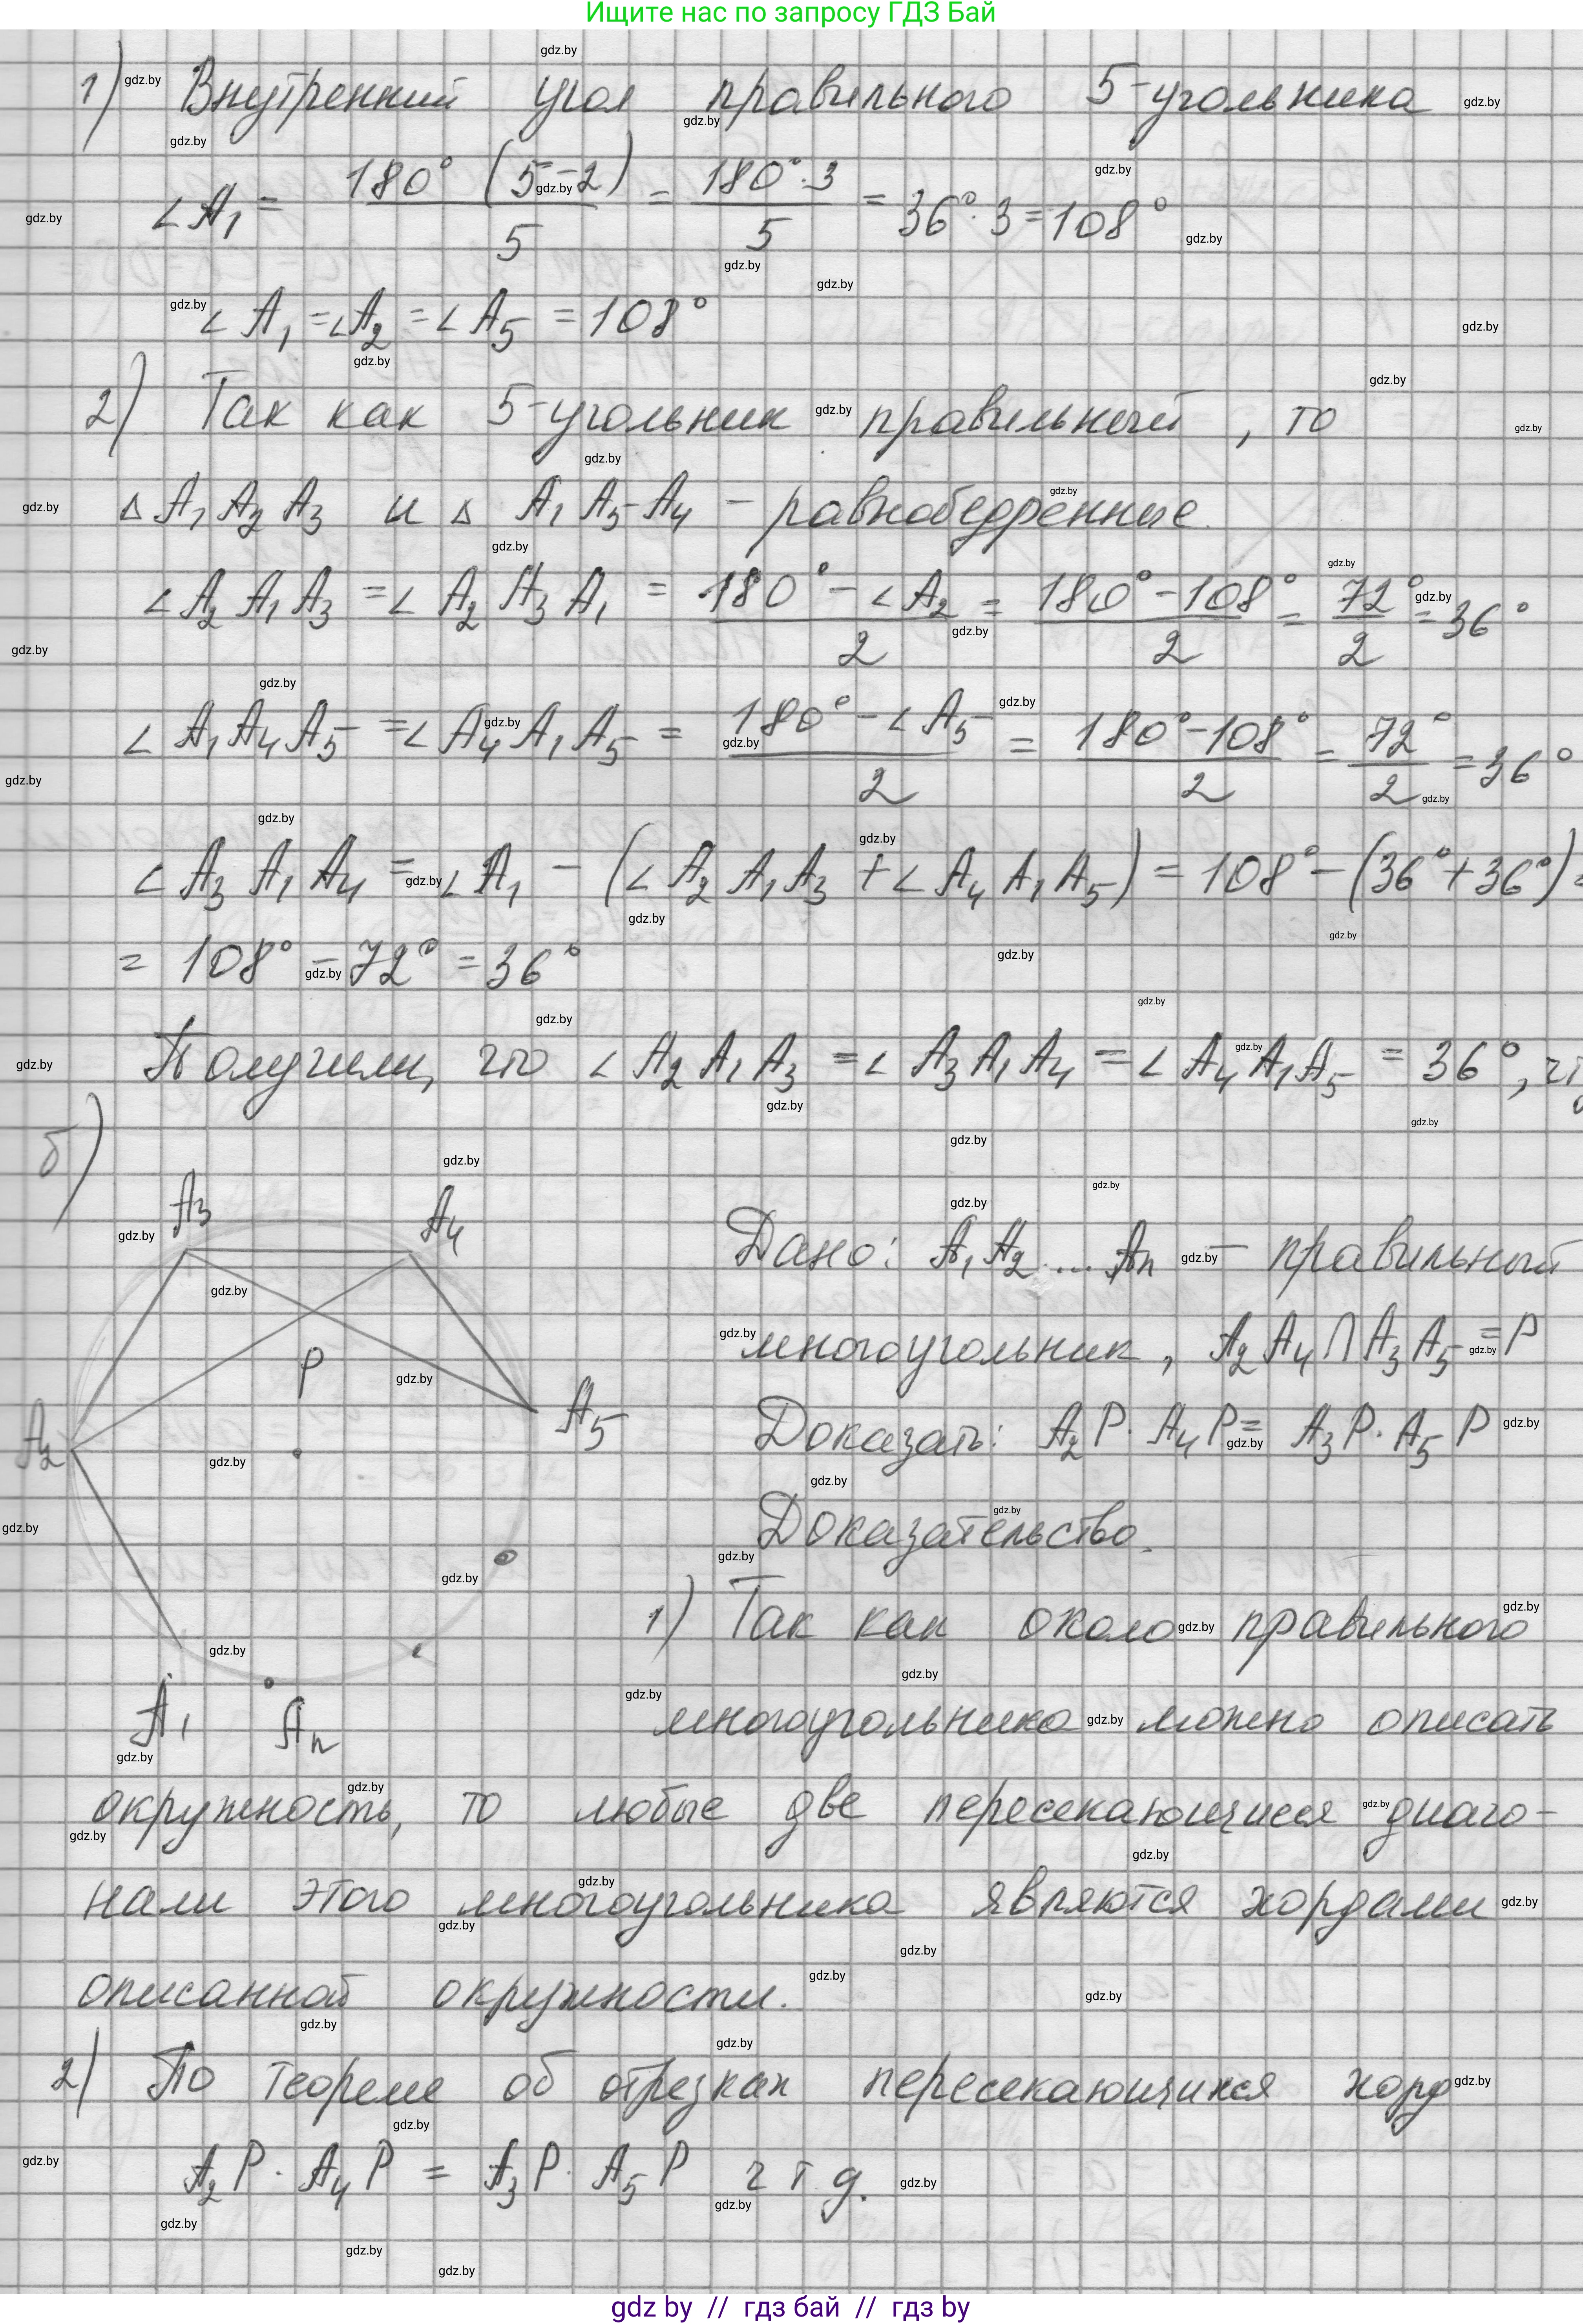 Ищите нас по запросу ГДЗ Бай
1) Внутренний угол правильного 5-угольника
∠A₁ = 180° (5-2) / 5 = 180°·3 / 5 = 36°·3 = 108°
∠A₁ = ∠A₂ = ∠A₅ = 108°
2) Так как 5-угольник правильный, то
△ A₁ A₂ A₃ и △ A₁ A₅ A₄ - равнобедренные.
∠A₂ A₁ A₃ = ∠A₂ A₃ A₁ = 180° - ∠A₂ / 2 = 180° - 108° / 2 = 72° / 2 = 36°
∠A₁ A₄ A₅ = ∠A₄ A₁ A₅ = 180° - ∠A₅ / 2 = 180° - 108° / 2 = 72° / 2 = 36°
∠A₃ A₁ A₄ = ∠A₁ - (∠A₂ A₁ A₃ + ∠A₄ A₁ A₅) = 108° - (36° + 36°) =
= 108° - 72° = 36°
Получили, что ∠A₂ A₁ A₃ = ∠A₃ A₁ A₄ = ∠A₄ A₁ A₅ = 36°,
б)
A₃ A₄
P
A₅
A₂
A₁ Aₙ
Дано: A₁ A₂ ... Aₙ - правильный
многоугольник, A₂ A₄ ∩ A₃ A₅ = P
Доказать: A₂P · A₄P = A₃P · A₅P
Доказательство.
1) Так как около правильного
многоугольника можно описать
окружность, то любые две пересекающиеся диаго-
нали этого многоугольника являются хордами
описанной окружности.
2) По теореме об отрезках пересекающихся хорд
A₂P · A₄P = A₃P · A₅P ч т д.
gdz by // гдз бай // гдз by